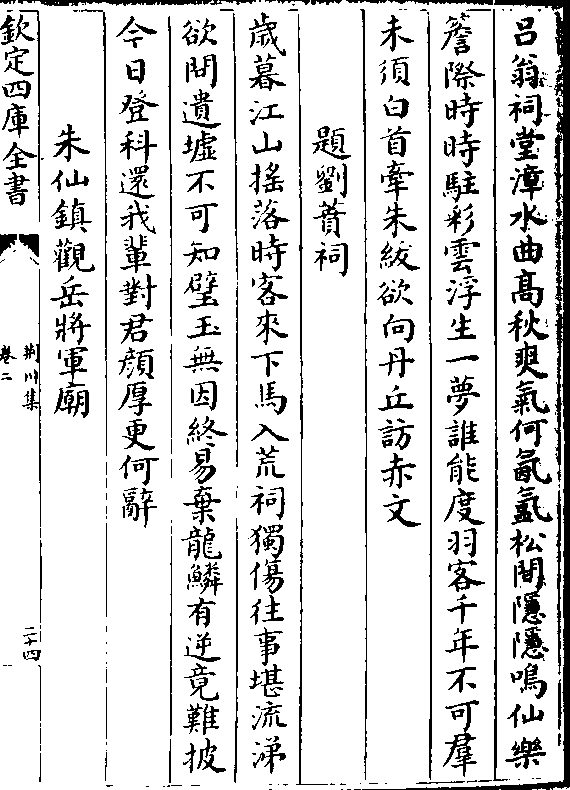 吕翁祠堂漳水曲高秋爽氣何氤氲松間隱隱鳴仙樂
簷際時時駐彩雲浮生一夢誰能度羽客千年不可羣
未須白首牽朱紱欲向丹丘訪赤文
題劉蕡祠
歲暮江山搖落時客來下馬入荒祠獨傷往事堪流涕
欲問遺墟不可知璧玉無因終易棄龍鱗有逆竟難披
今日登科還我輩對君顔厚更何辭
朱仙鎮觀岳將軍廟
欽定四庫全書
荆川集
卷二
二十四